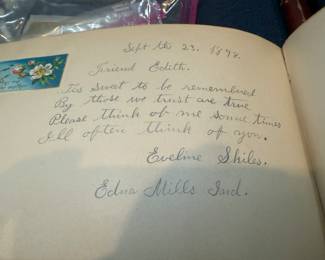 Sept the 23. 1898.
Friend Edith.
Tis sweet to be remembered
By those we trust are true
Please think of me some times
I'll often think of you.
Eveline Shiles.
Edna Mills Ind.